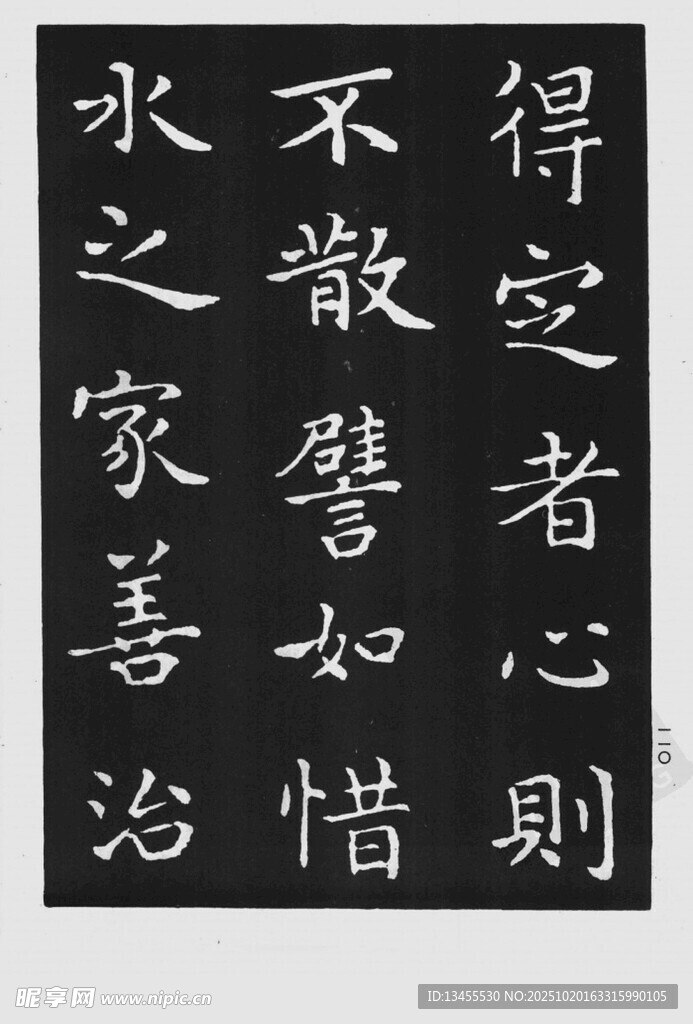 得定者心則
不散譬如惜
水之家善治
一一〇
昵享网 www.nipic.cn
ID:13455530 NO:20251020163315990105